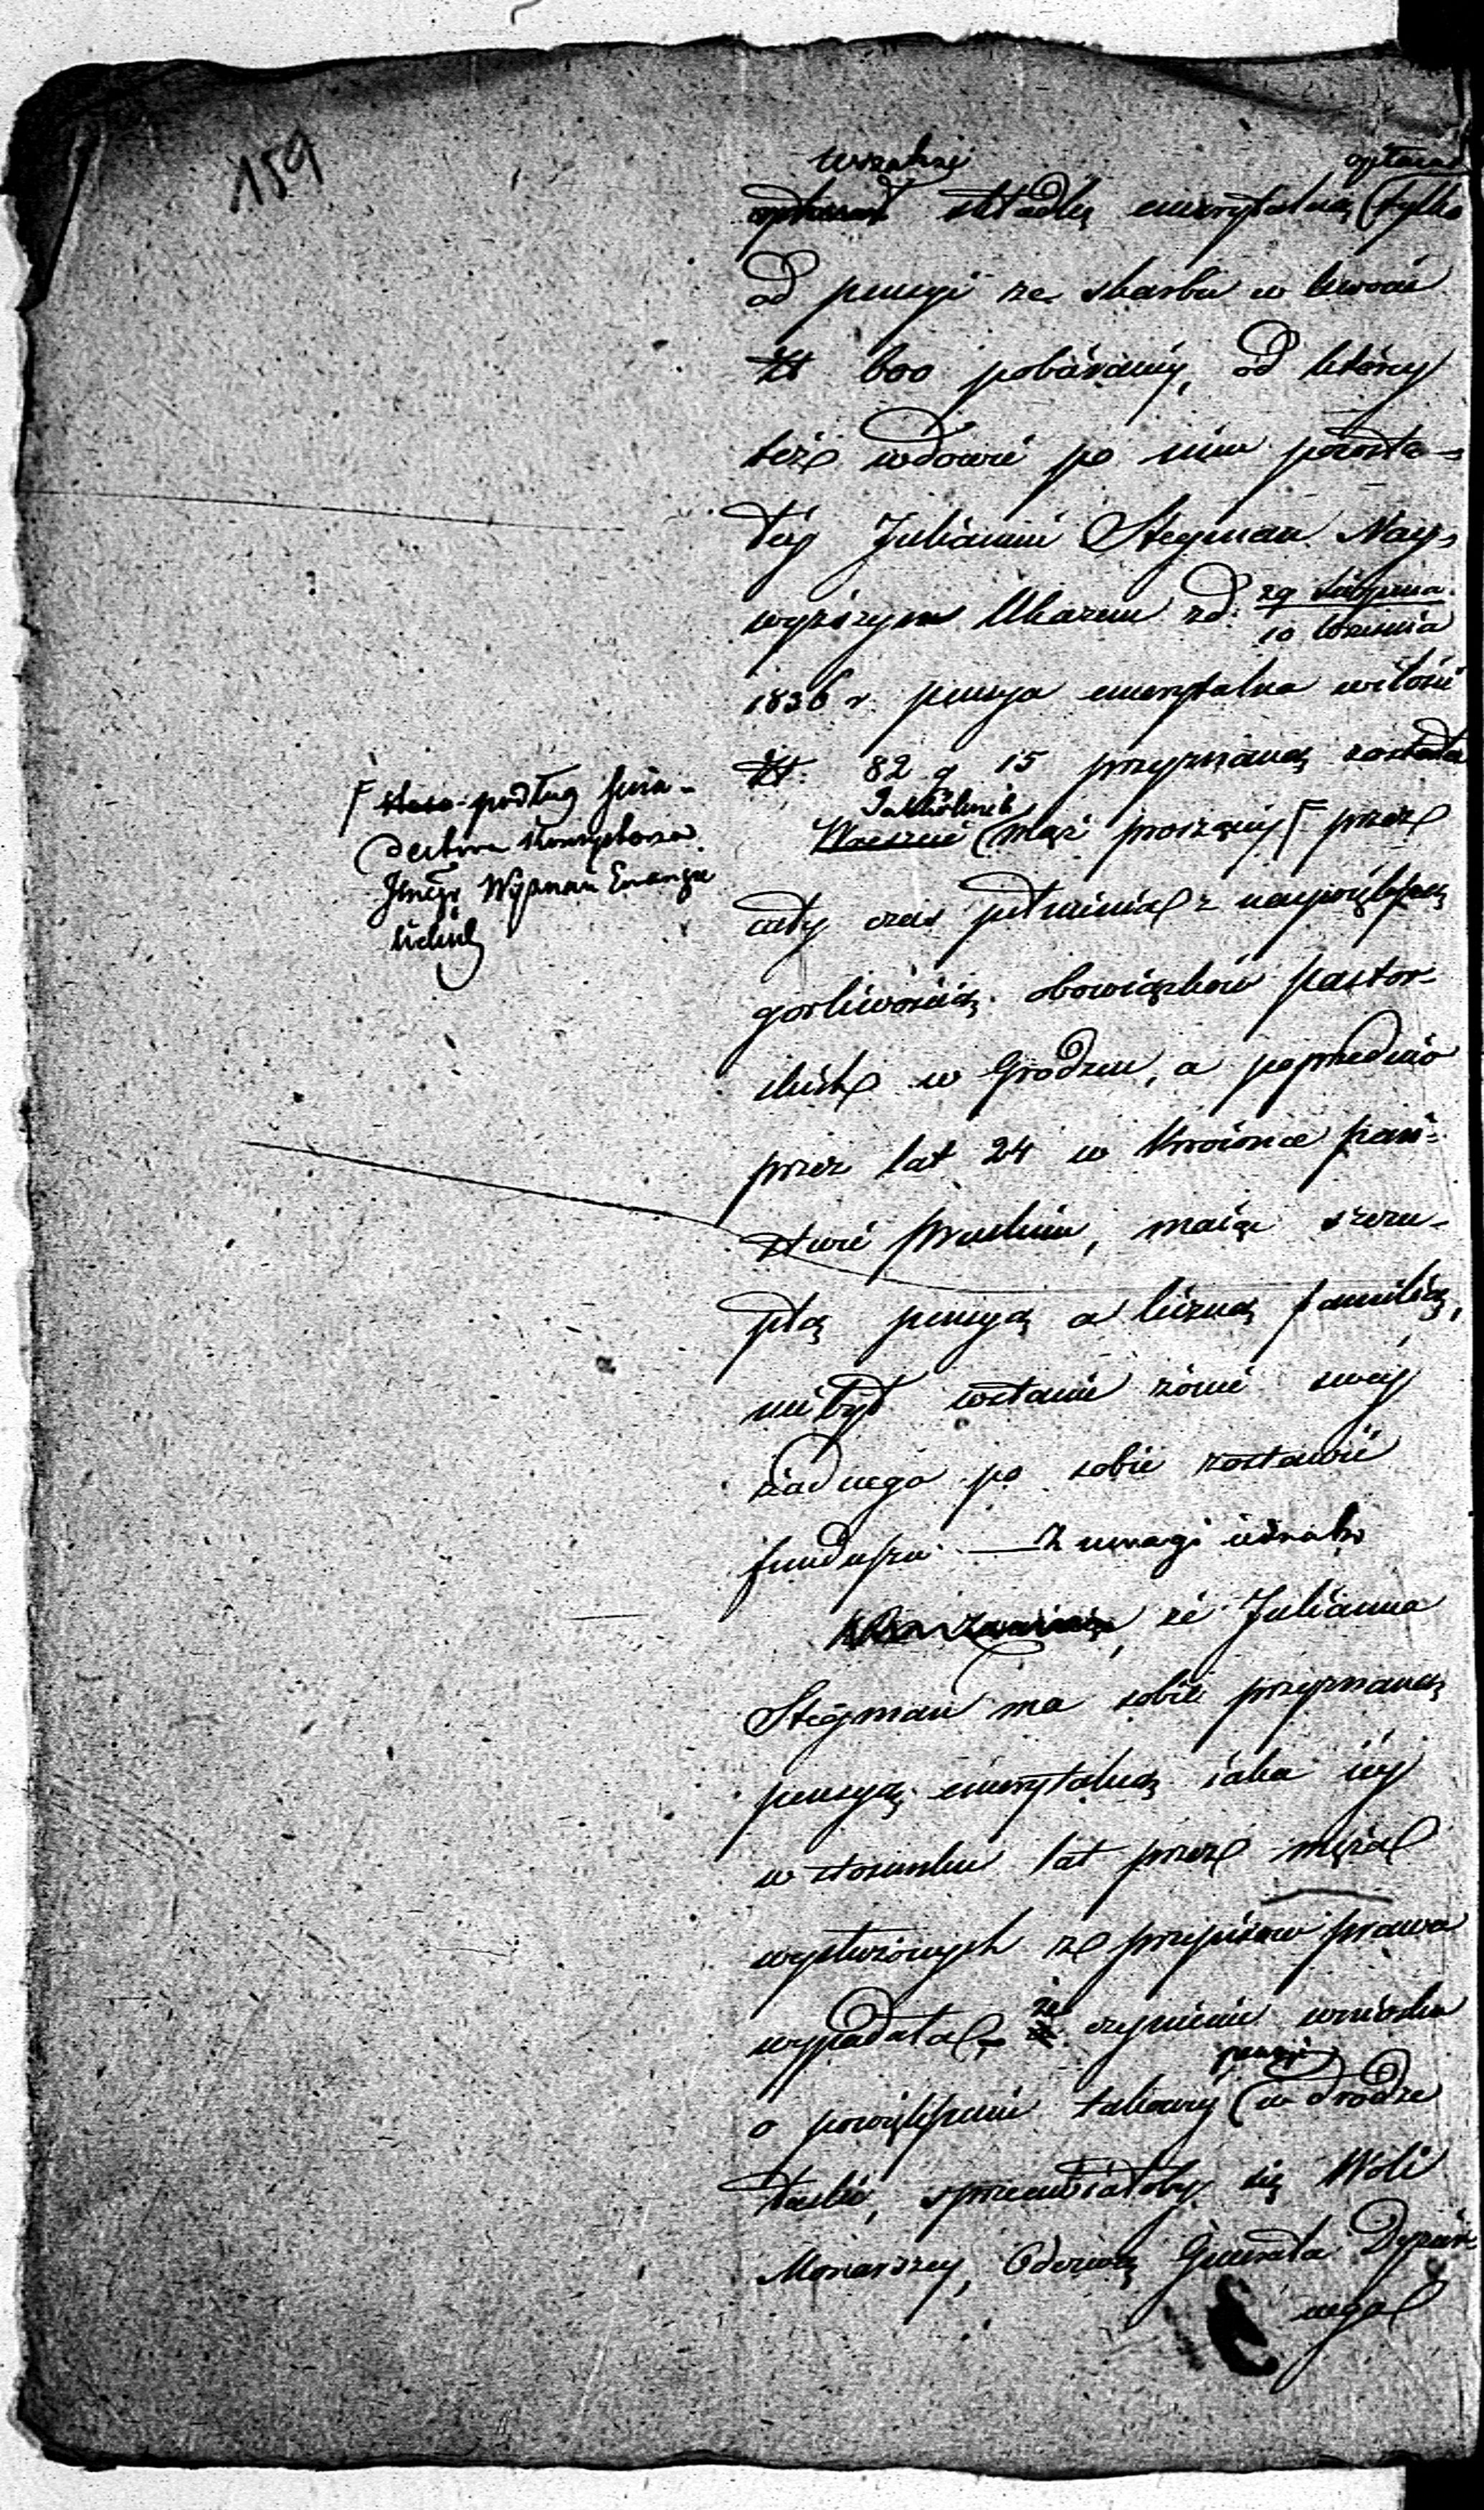 159
wszakże opłacał
opłacał składkę emerytalną (tylko
od pensyi ze skarbu w kwocie
Zł 600 pobieraney, od którey
też wdowie po nim pozosta=
łey Juliannie Stegman Nay=
wyższym Ukazem z d. 29 Sierpnia
10 Września
1836 r. pensya emerytalna w ilości
Zł. 82 g 15 przyznaną została
Jakkolwiek
Wreszcie (mąż proszącey F przez
cały czas pełnienia z naywiększą
gorliwością obowiązków pastor-
skich w Grodzcu, a poprzednio
przez lat 24 w Kroionce pań=
stwie Pruskim, maiąc szczu-
płą pensyą a liczną familią,
nie był wstanie żonie swey
żadnego po sobie zostawić
funduszu — Z uwagi iednak
że Julianna
Stegman ma sobie przyznaną
pensyą emerytalną iaka iey
w stosunku lat przez męża
wysłużonych z przepisów prawa
wypadała, że czynienie wniosku
pensyi
o powiększenie takowey (w drodze
łaski, sprzeciwiałoby się Woli
Monarszey, Odezwą Generała Dyżur
nego
F podług świa-
dectwa Konsystorza
Jlnego Wyznań Ewange
lickich